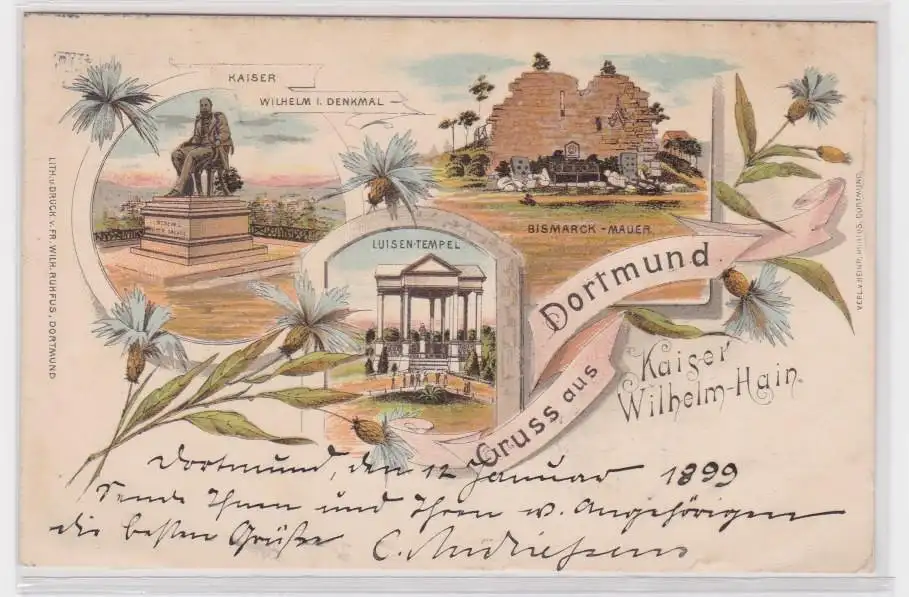 KAISER
WILHELM I. DENKMAL
BISMARCK-MAUER
LUISEN-TEMPEL
Gruss aus Dortmund
Kaiser
Wilhelm-Hain.
LITH. u. DRUCK v. FR. WILH. RUHFUS, DORTMUND
VERL. v. HEINR. DORTMUND.
Dortmund, den 12 Januar 1899
Sende Ihnen und Ihren w. Angehörigen
die besten Grüße C. Andriessens